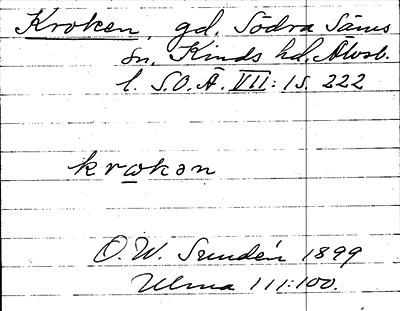 Kroken, gd, Södra Säms
sn, Kinds hd, Älvsb.
l. S.O.Ä. VII:1 s. 222
krωkən
O. W. Sundén 1899
Ulma 111:100.